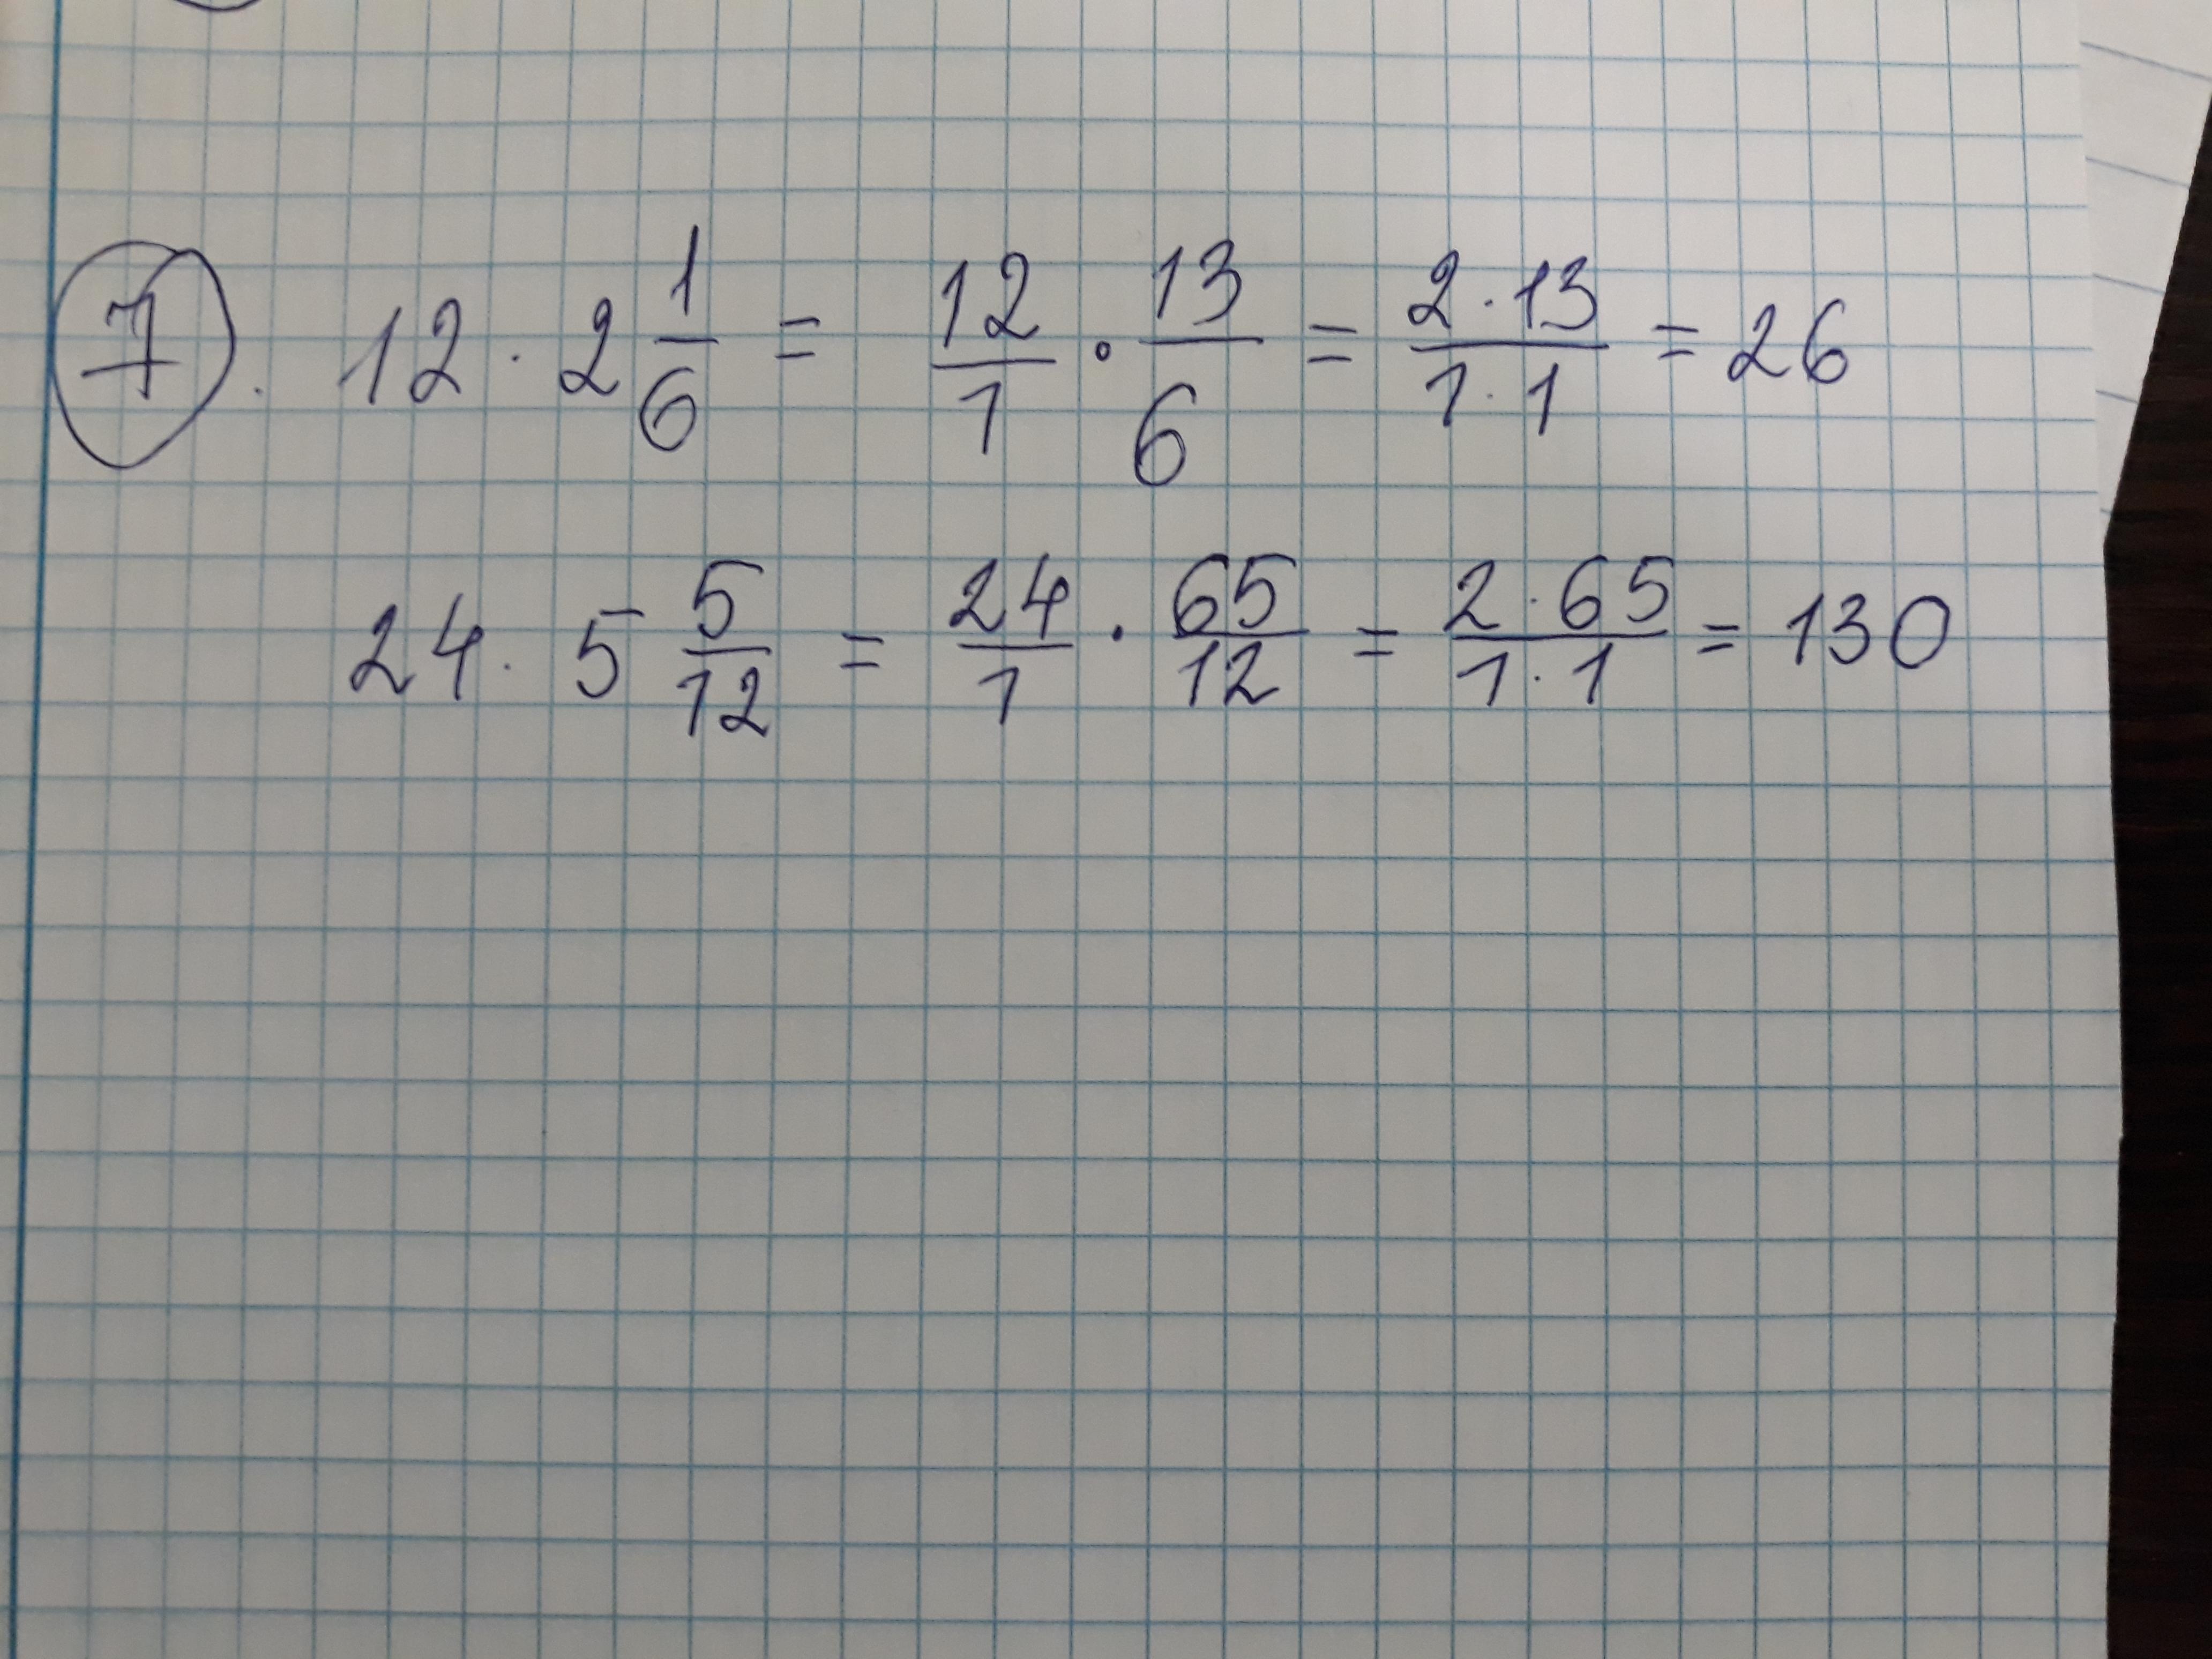 7. 12 · 2 1/6 = 12/1 · 13/6 = 2 · 13/1 · 1 = 26
24 · 5 5/12 = 24/1 · 65/12 = 2 · 65/1 · 1 = 130